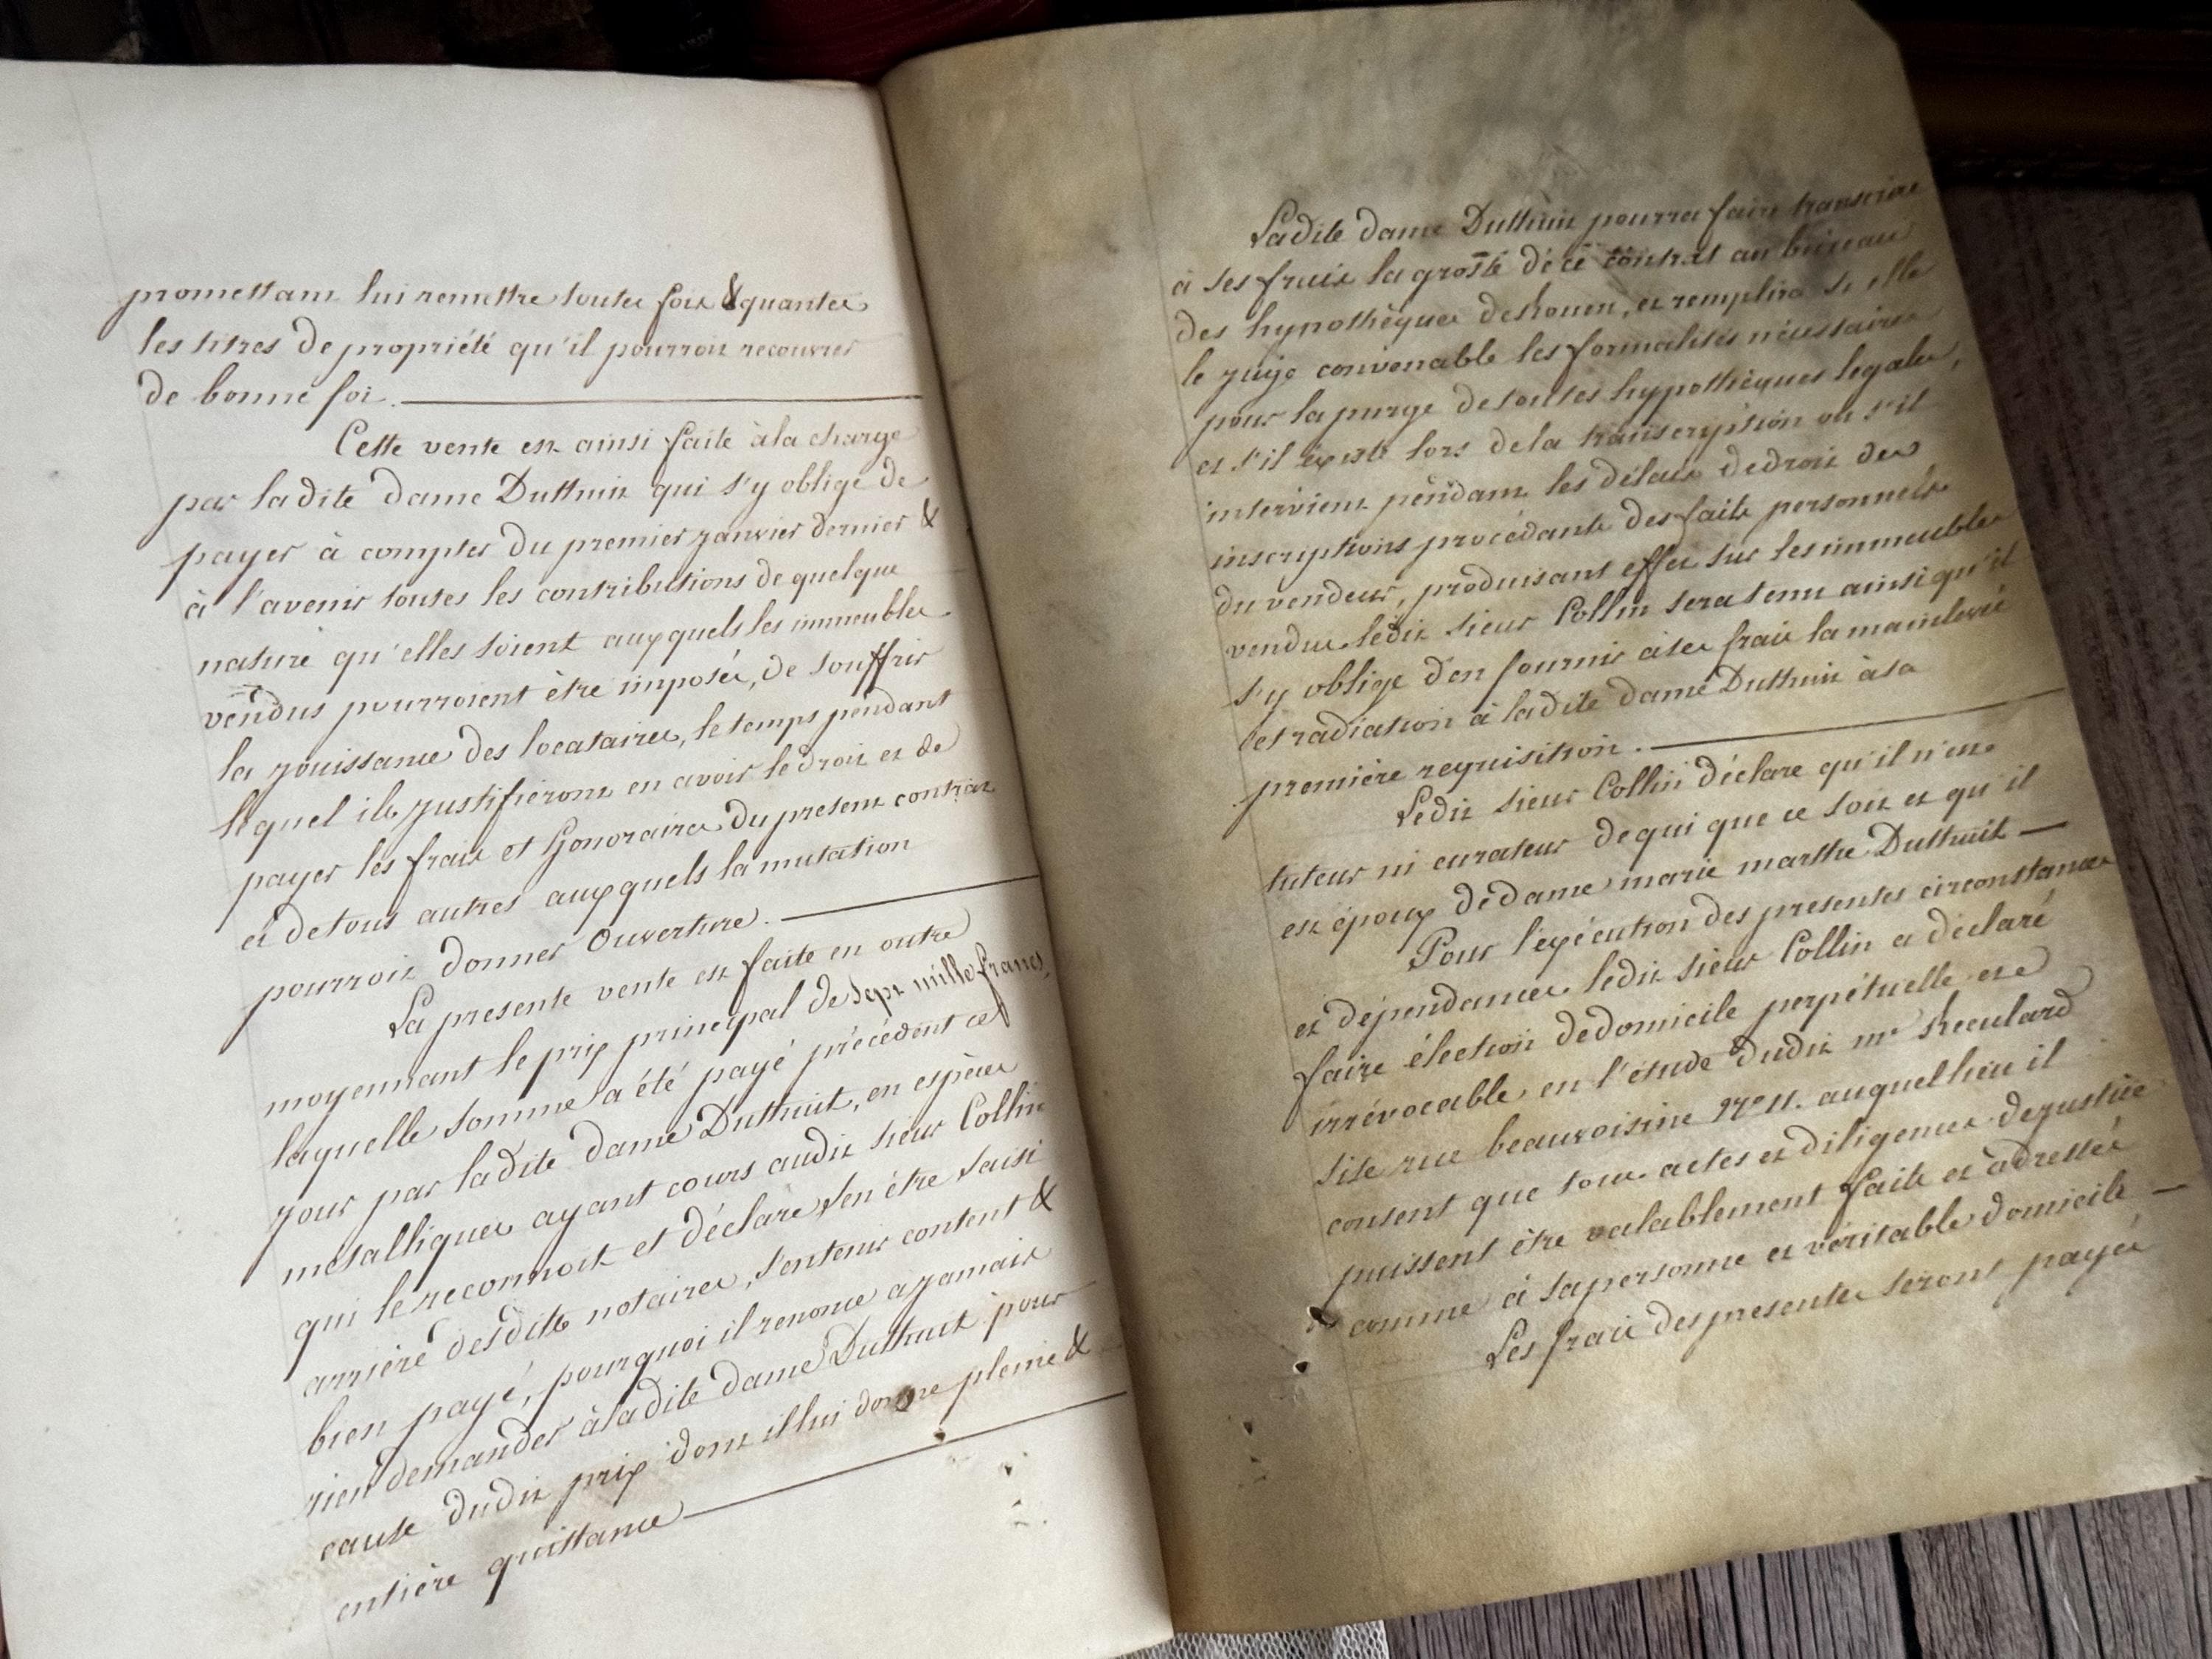 promettant lui remettre toutes fois & quantes
les titres de propriété qu'il pourroit recouvrer
de bonne foi.
Cette vente est ainsi faite à la charge
par ladite dame Duthuit qui s'y oblige de
payer à compter du premier janvier dernier &
à l'avenir toutes les contributions de quelque
nature qu'elles soient auxquels les immeubles
vendus pourroient être imposés, de souffrir
la jouissance des locataires, le temps pendant
lequel ils justifieront en avoir le droit et de
payer les frais et honoraires du present contrat
et de tous autres auxquels la mutation
pourroit donner Ouverture.
La presente vente est faite en outre
moyennant le prix principal de sept mille francs,
laquelle somme a été payé précédent ce
jour par ladite dame Duthuit, en espèces
métalliques ayant cours audit sieur Collin
qui le reconnoit et déclare s'en être saisi
arrière desdits notaires, s'en tenir content &
bien payé, pourquoi il renonce a jamais
rien demander à ladite dame Duthuit pour
cause dudit prix dont il lui donne pleine &
entière quittance
Ladite dame Duthuit pourra faire transcrire
à ses frais la grosse de ce contrat au bureau
des hypothèques de Rouen, et remplira si elle
le juge convenable les formalités nécessaires
pour la purge de toutes hypothèques legales,
et s'il existe lors de la transcription ou s'il
intervient pendant les délais de droit des
inscriptions procédants des faits personnels
du vendeur, produisant effet sur les immeubles
vendus ledit sieur Collin sera tenu ainsi qu'il
s'y oblige d'en fournir à ses frais la mainlevée
et radiation à ladite dame Duthuit à sa
première requisition.
Ledit sieur Collin déclare qu'il n'est
tuteur ni curateur de qui que ce soit et qu'il
est époux de dame marie marthe Duthuit
Pour l'exécution des presentes circonstances
et dépendances ledit sieur Collin a déclaré
faire élection de domicile perpétuelle et
irrévocable en l'étude dudit me Reculard
sise rue beauvoisine no 11. auquel lieu il
consent que tous actes et diligences de justice
puissent être valablement faits et adressés
comme à sa personne et véritable domicile
Les frais des presentes seront payés